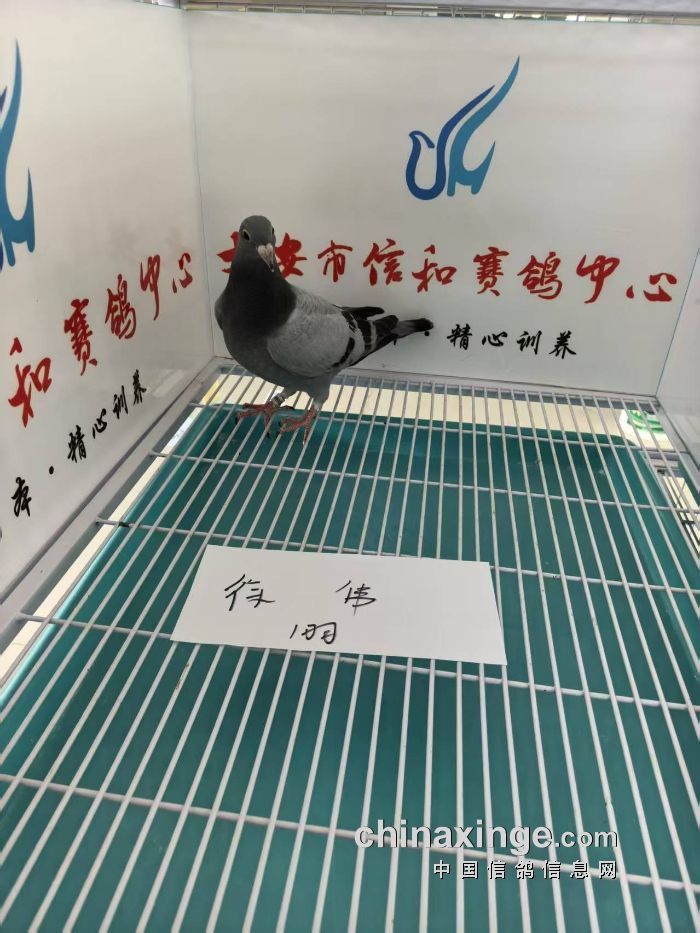 安市信和赛鸽中心
精心训养
和赛鸽中心
·精心训养
徐 伟
chinaxinge.com
中国信鸽信息网